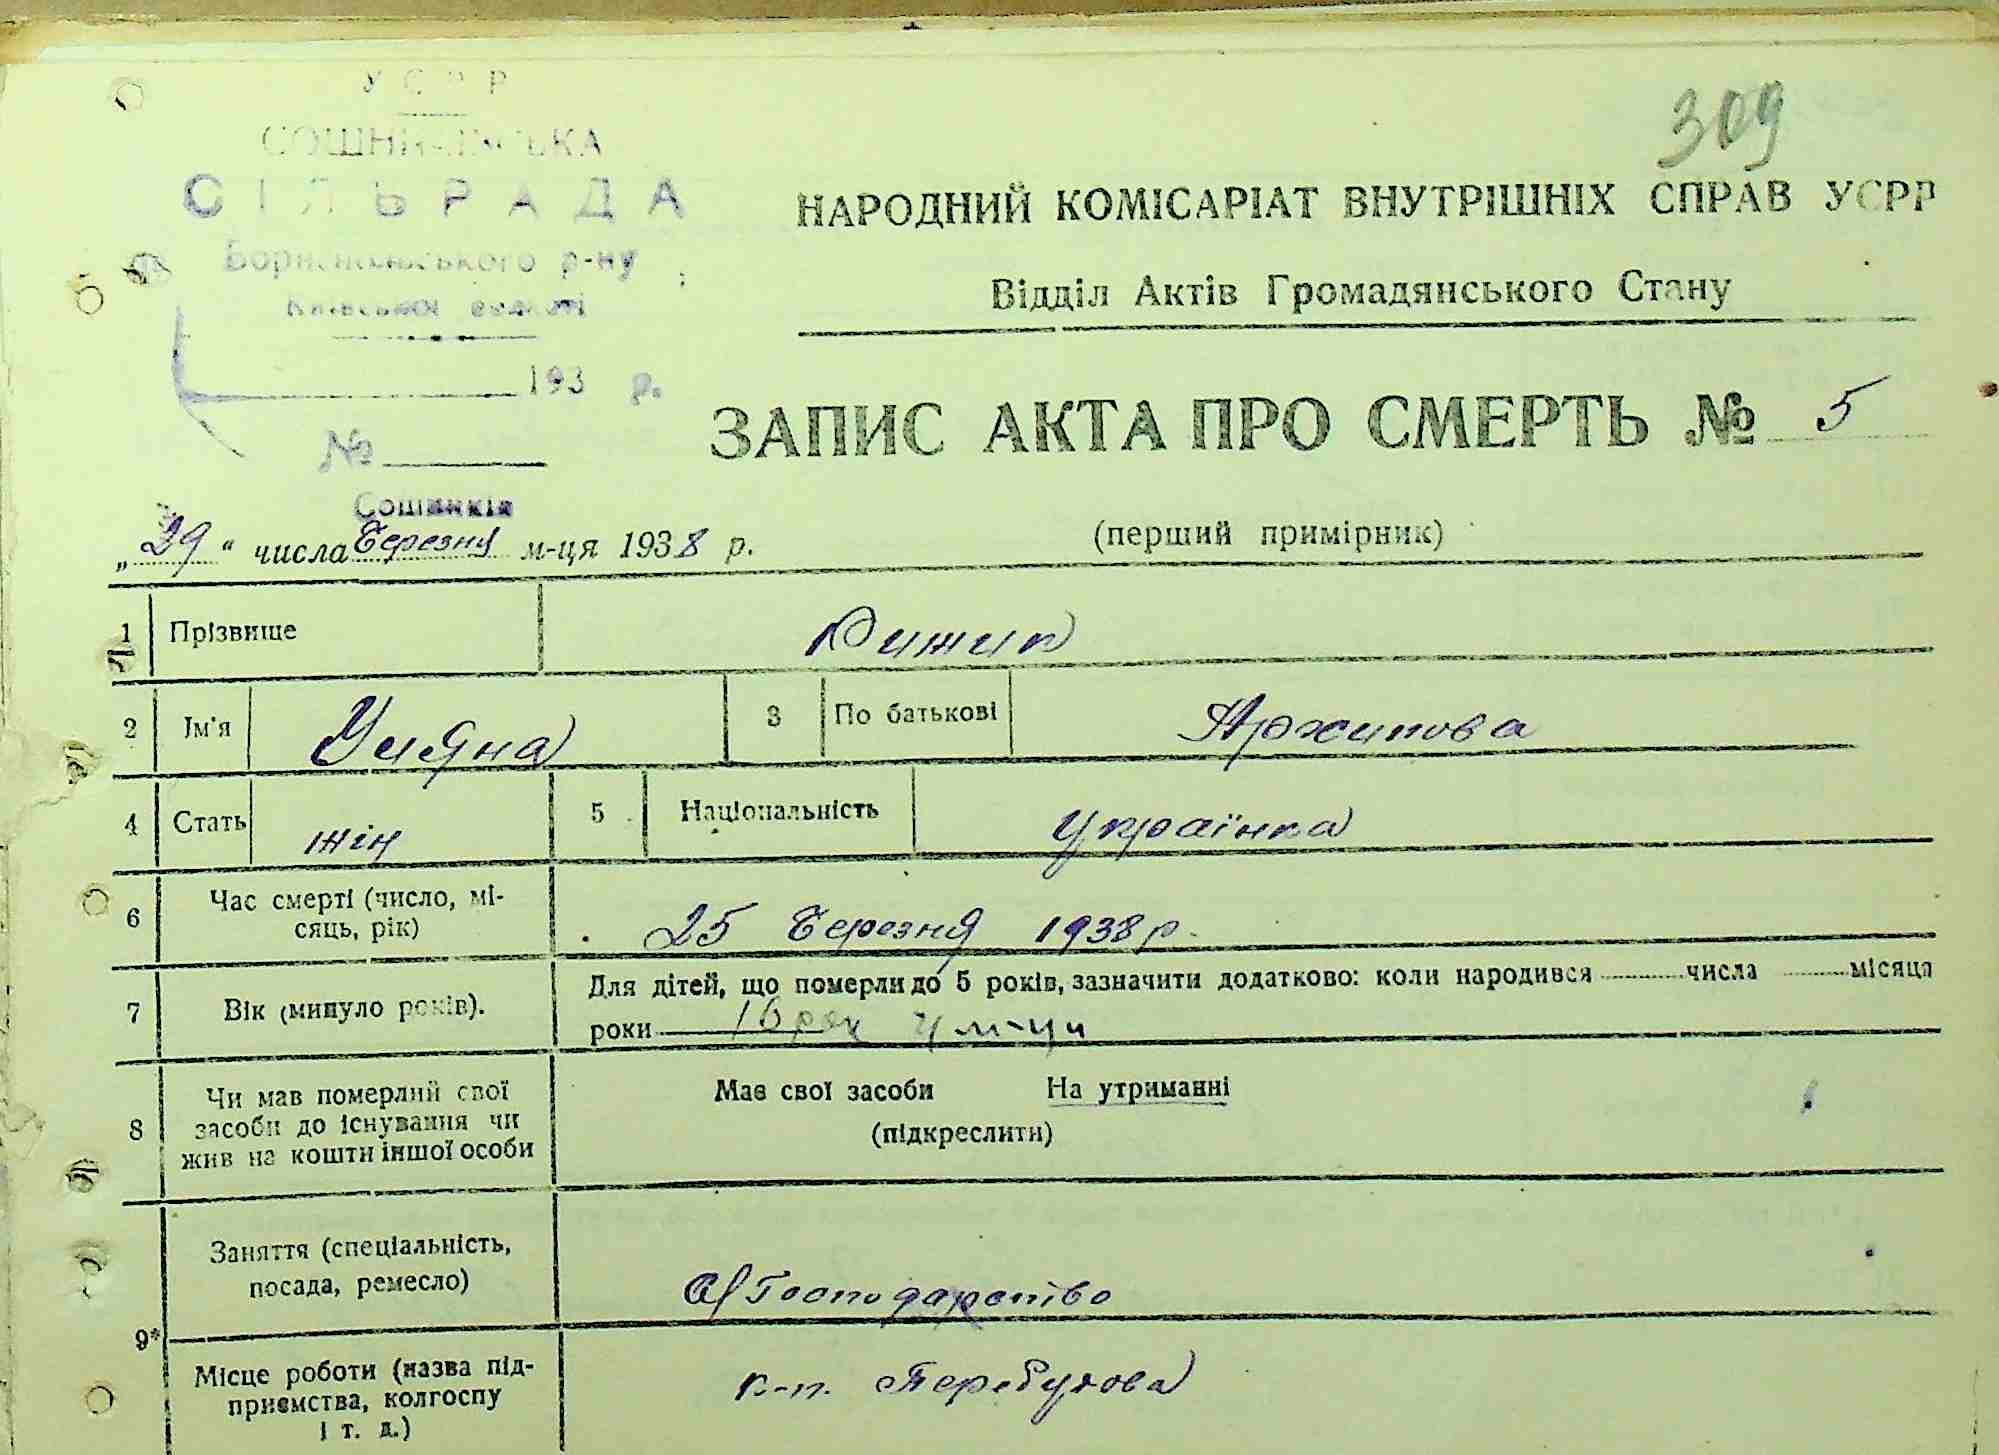 УСРР
309
СОШНИКІВСЬКА
СІЛЬРАДА
НАРОДНИЙ КОМІСАРІАТ ВНУТРІШНІХ СПРАВ УСРР
Бориспільського р-ну
Київської області
Відділ Актів Громадянського Стану
193 р.
ЗАПИС АКТА ПРО СМЕРТЬ № 5
№
Сошників
„29“ числа Березня м-ця 1938 р.
(перший примірник)
1 Прізвище Рижик
2 Ім'я Уляна 3 По батькові Архипова
4 Стать жін 5 Національність Українка
6 Час смерті (число, мі-
сяць, рік) 25 Березня 1938 р.
7 Вік (минуло років). Для дітей, що померли до 5 років, зазначити додатково: коли народився числа місяця
роки 10 рок 4 м-ци
8 Чи мав померлий свої
засоби до існування чи
жив на кошти іншої особи
Має свої засоби На утриманні
(підкреслити)
9* Заняття (спеціальність,
посада, ремесло) С/Господарство
Місце роботи (назва під-
приємства, колгоспу
і т. д.)
к-п. Перебудова